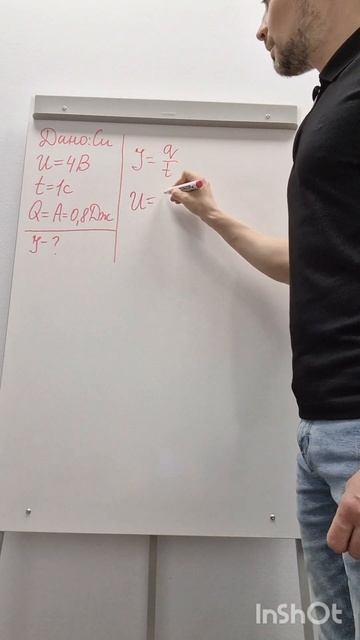 Дано: Си
U=4В
t=1с
Q=A=0,8Дж
J-?
J= q/t
U=
InShOt